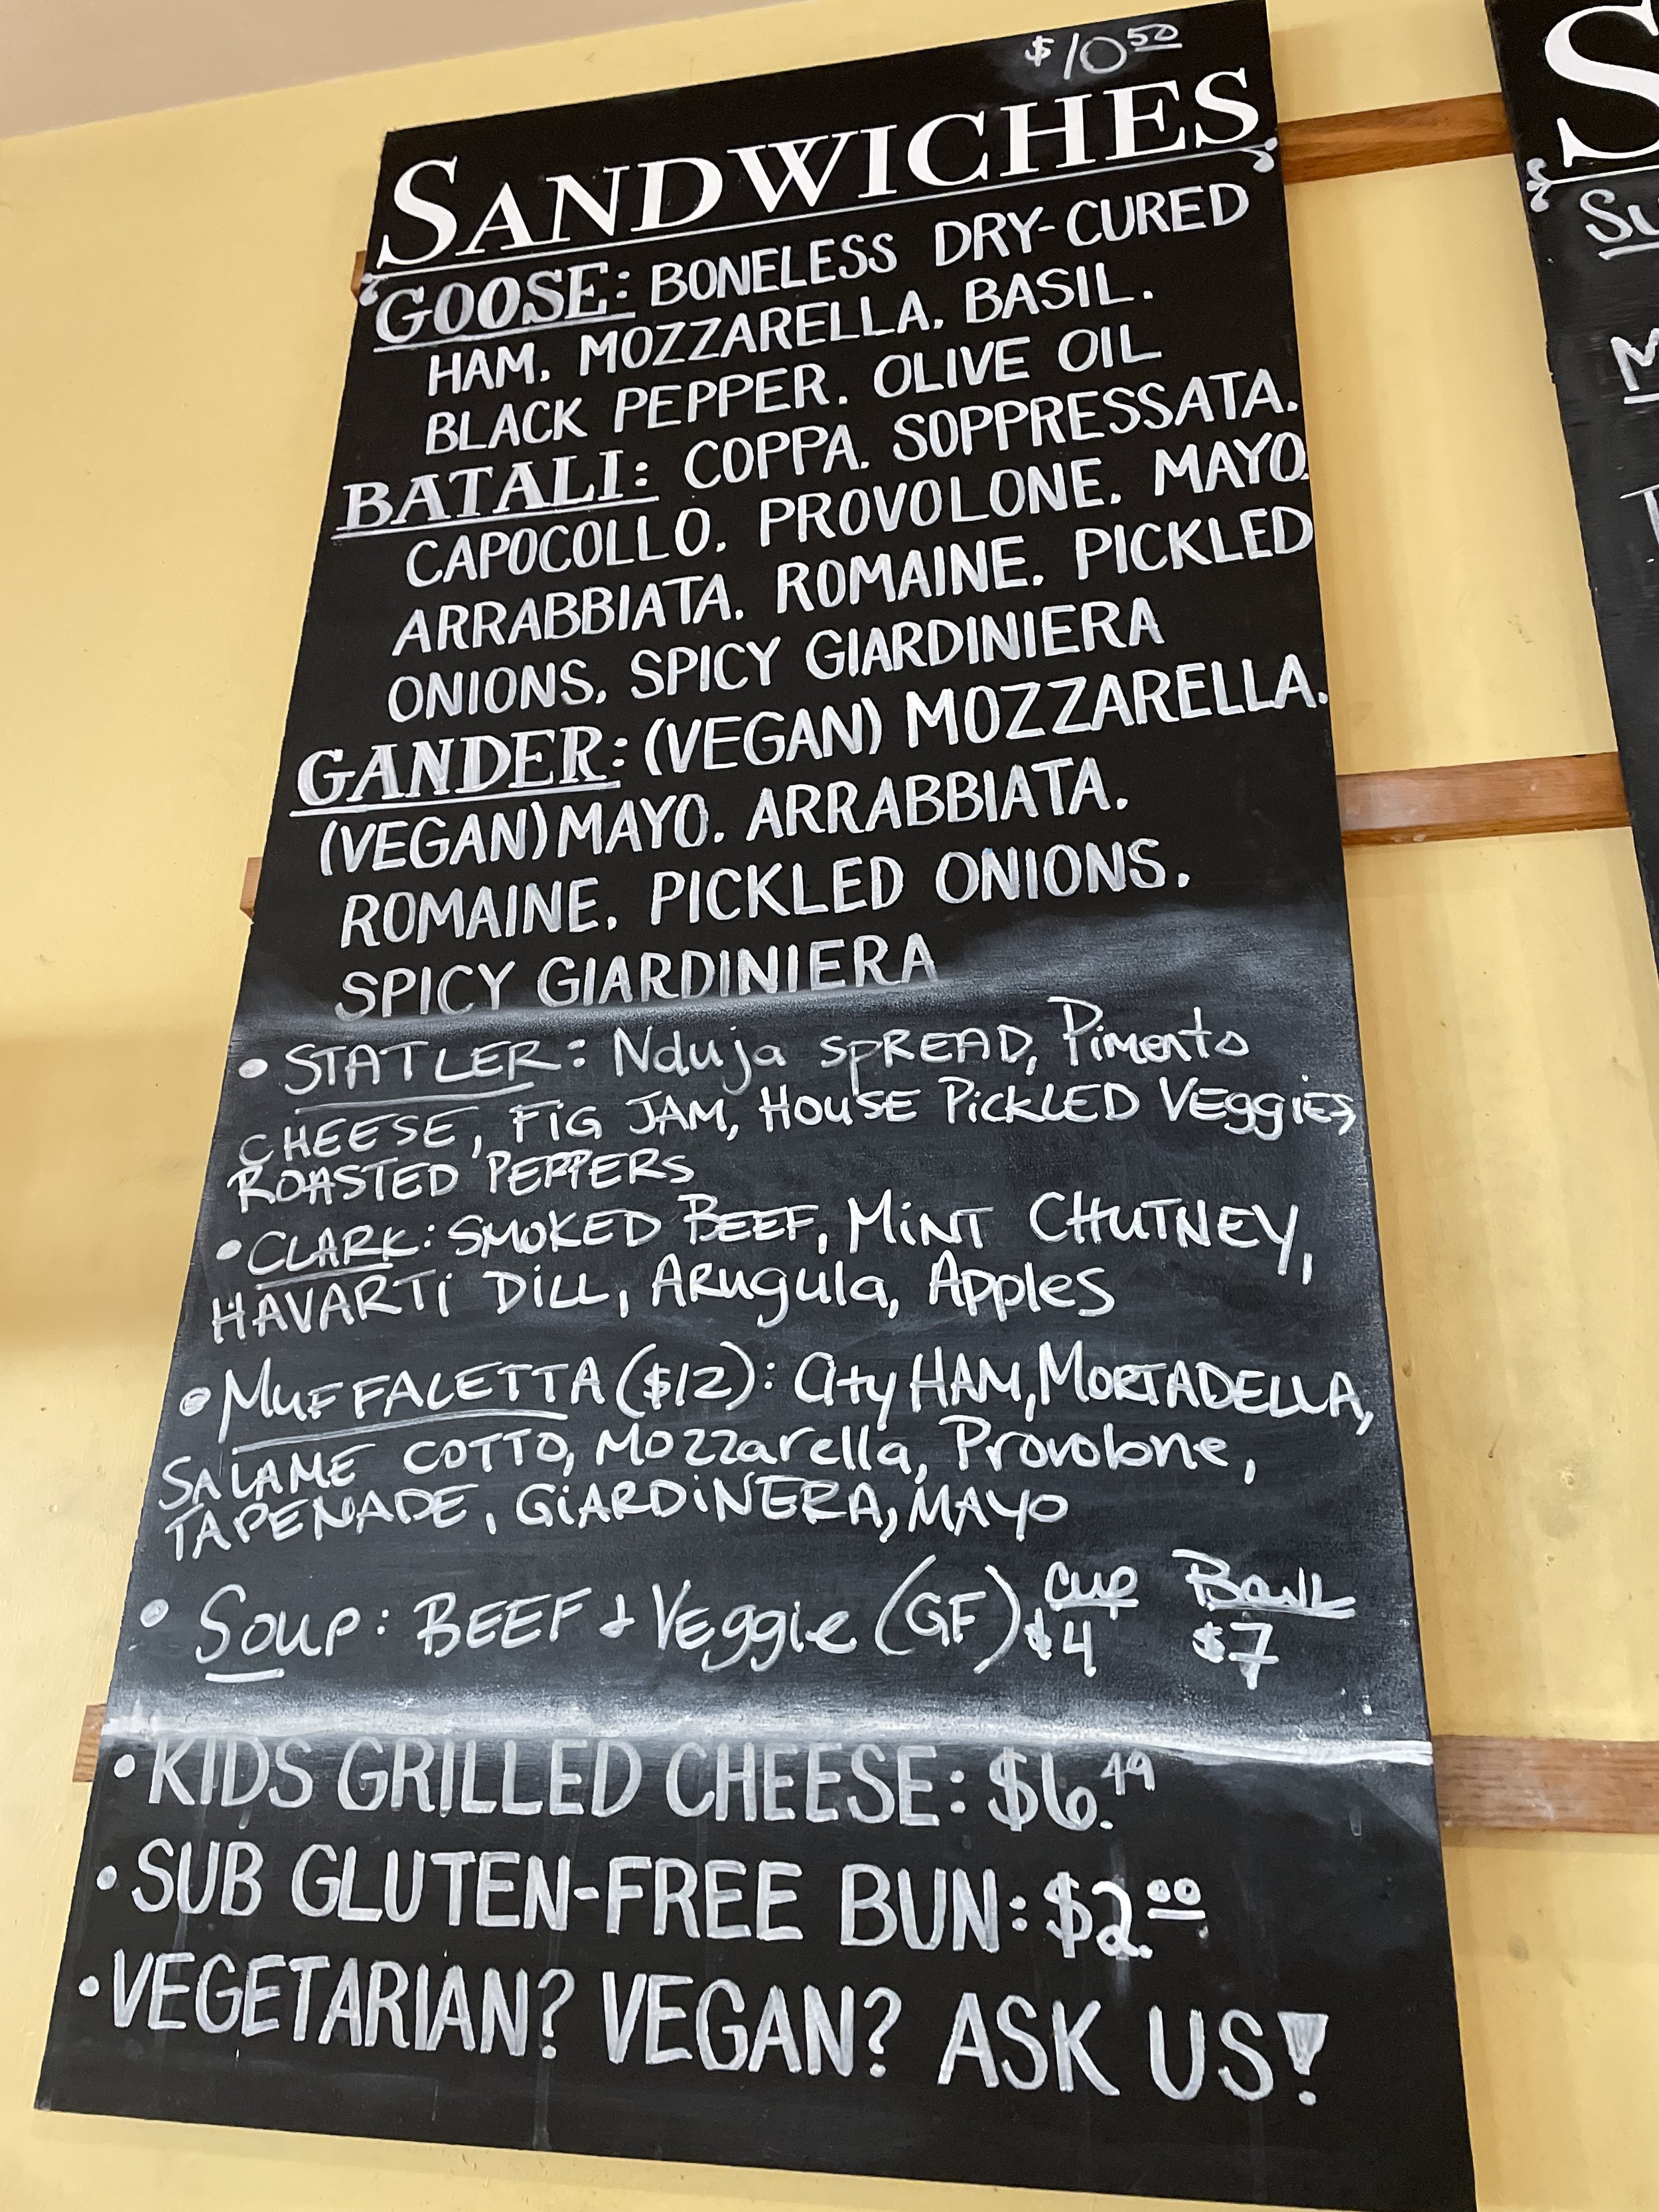 $10 50
SANDWICHES
GOOSE: BONELESS DRY-CURED
HAM. MOZZARELLA. BASIL.
BLACK PEPPER. OLIVE OIL
BATALI: COPPA. SOPPRESSATA.
CAPOCOLLO. PROVOLONE. MAYO.
ARRABBIATA. ROMAINE. PICKLED
ONIONS. SPICY GIARDINIERA
GANDER: (VEGAN) MOZZARELLA.
(VEGAN) MAYO. ARRABBIATA.
ROMAINE. PICKLED ONIONS.
SPICY GIARDINIERA
• STATLER: Nduja SPREAD, Pimento
CHEESE, FiG JAM, HOUSE PiCKLED VEggiES,
ROASTED PEPPERS
• CLARK: SMOKED BEEF, MiNT CHUTNEY,
HAVARTi DiLL, ARugula, Apples
• MUFFALETTA ($12): City HAM, MORTADELLA,
SALAME COTTO, Mozzarella, Provolone,
TAPENADE, GiARDiNERA, MAYO
• Soup: BEEF + Veggie (GF) Cup $4 Bowl $7
• KIDS GRILLED CHEESE: $6.49
• SUB GLUTEN-FREE BUN: $2.00
• VEGETARIAN? VEGAN? ASK US!
S
Su
M